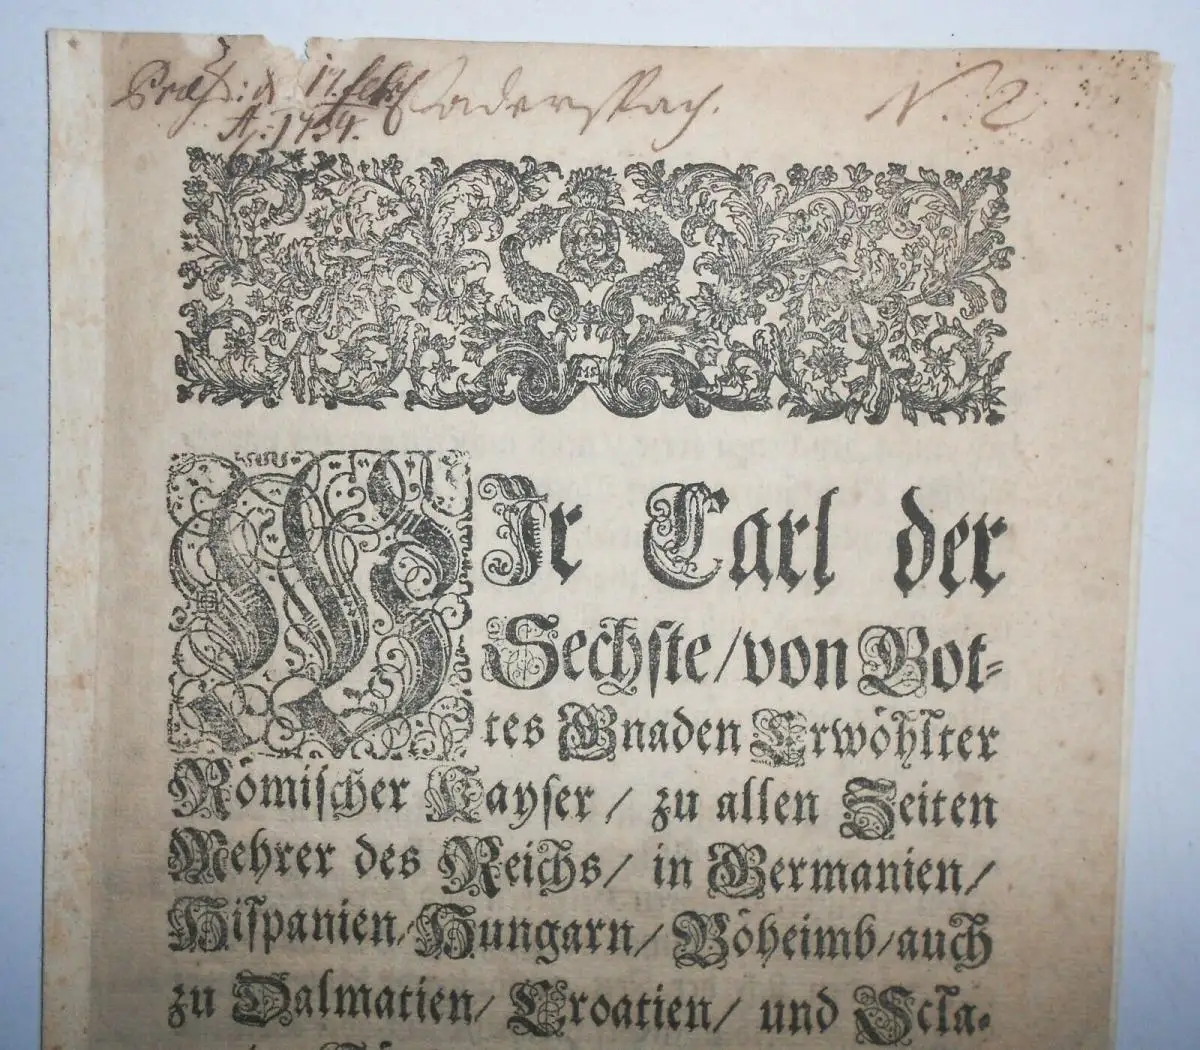 Præs: d 17. febr Vaderspach. N. 2
A. 1734.
WIr Carl der
Sechste/ von Got-
tes Gnaden Erwöhlter
Römischer Kayser / zu allen Zeiten
Mehrer des Reichs/ in Germanien/
Hispanien/ Hungarn/ Böheimb/ auch
zu Dalmatien/ Croatien/ und Scla-